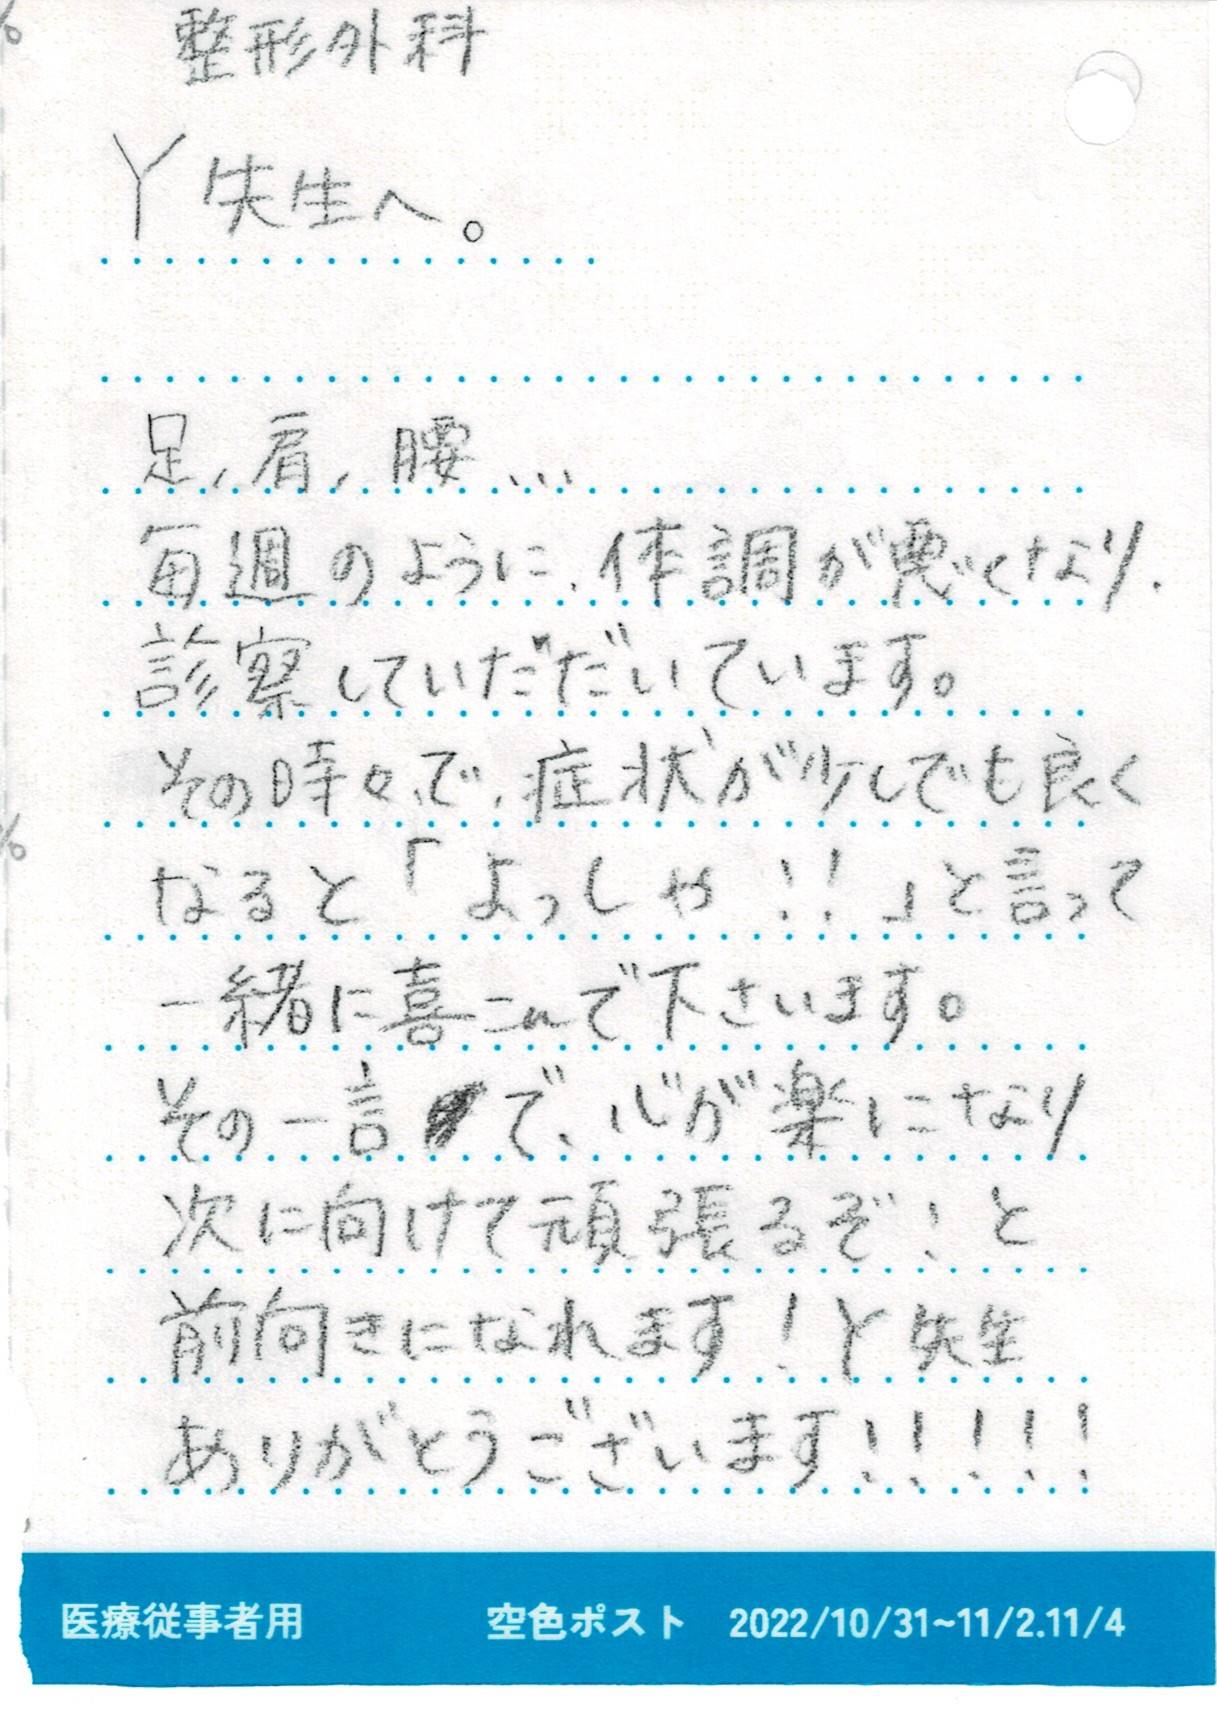 整形外科
Y先生へ。
足、肩、腰...
毎週のように、体調が悪くなり、
診察していだだいています。
その時々で、症状が少しでも良く
なると「よっしゃ!!」と言って
一緒に喜こんで下さいます。
その一言で、心が楽になり
次に向けて頑張るぞ!と
前向きになれます!Y先生
ありがとうございます!!!!!
医療従事者用 空色ポスト 2022/10/31~11/2.11/4